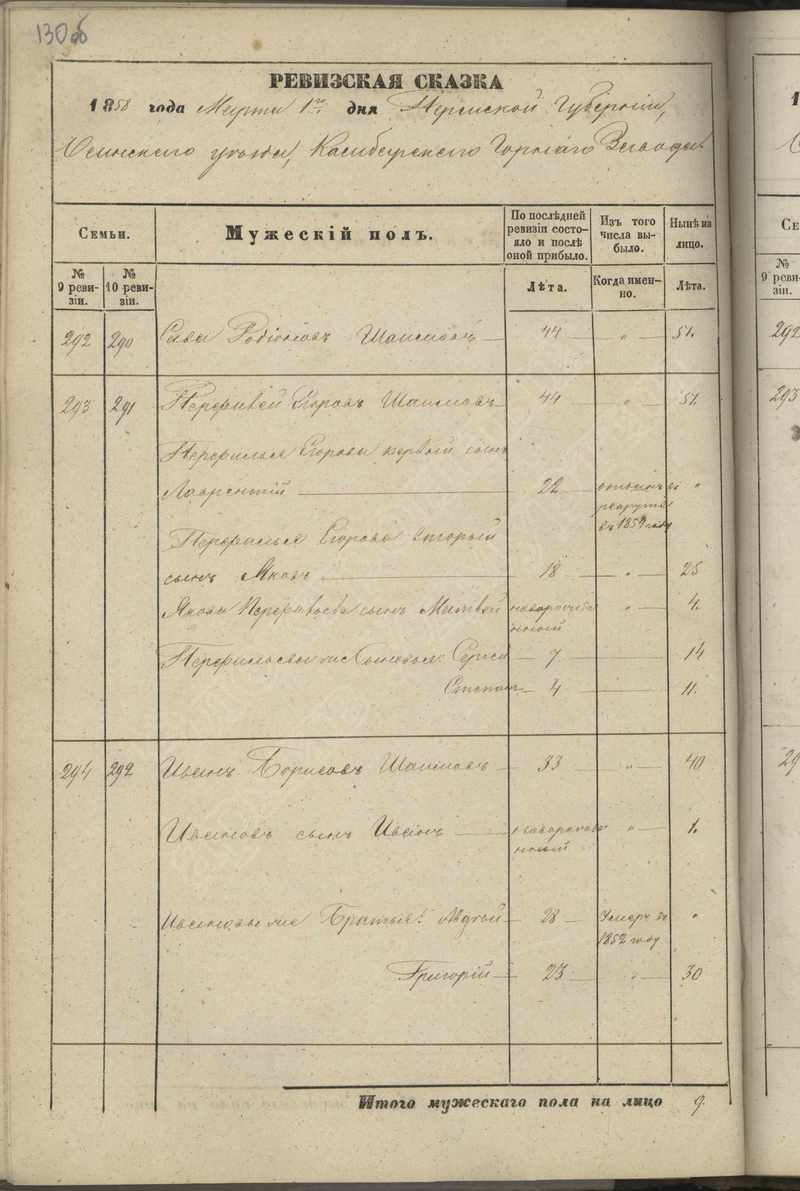 130об
РЕВИЗСКАЯ СКАЗКА
1858 года Марта 1го дня Пермской Губерніи,
Осинскаго уѣзда, Камбарскаго Горнаго Завода.
Семьи.
Мужескій полъ.
По послѣдней ревизіи состояло и послѣ оной прибыло.
Изъ того числа выбыло.
Нынѣ на лицо.
№ 9 ревизіи.
№ 10 ревизіи.
Лѣта.
Когда именно.
Лѣта.
292 290 Сава Родіоновъ 44 „ 51.
293 291 Перфилей Егоровъ 44 „ 51.
Перфилья Егорова первый сынъ
Лаврентій 22 въ рекруты въ 1852 году „
Перфилья Егорова второй
сынъ Яковъ 18 „ 25
Якова Перфильева сынъ Матвей новорожденный „ 4.
Перфильевы же Сыновья: Сергей 7 14
Степанъ 4 11.
294 292 Иванъ Борисовъ 33 „ 40
Ивановъ сынъ Иванъ новорожденный „ 1.
Ивановы же Братья: 28 Умеръ въ 1852 году „
Григорій 23 „ 30
Итого мужескаго пола на лицо 9.
1
Се
№ 9 ревизіи.
292
293
29